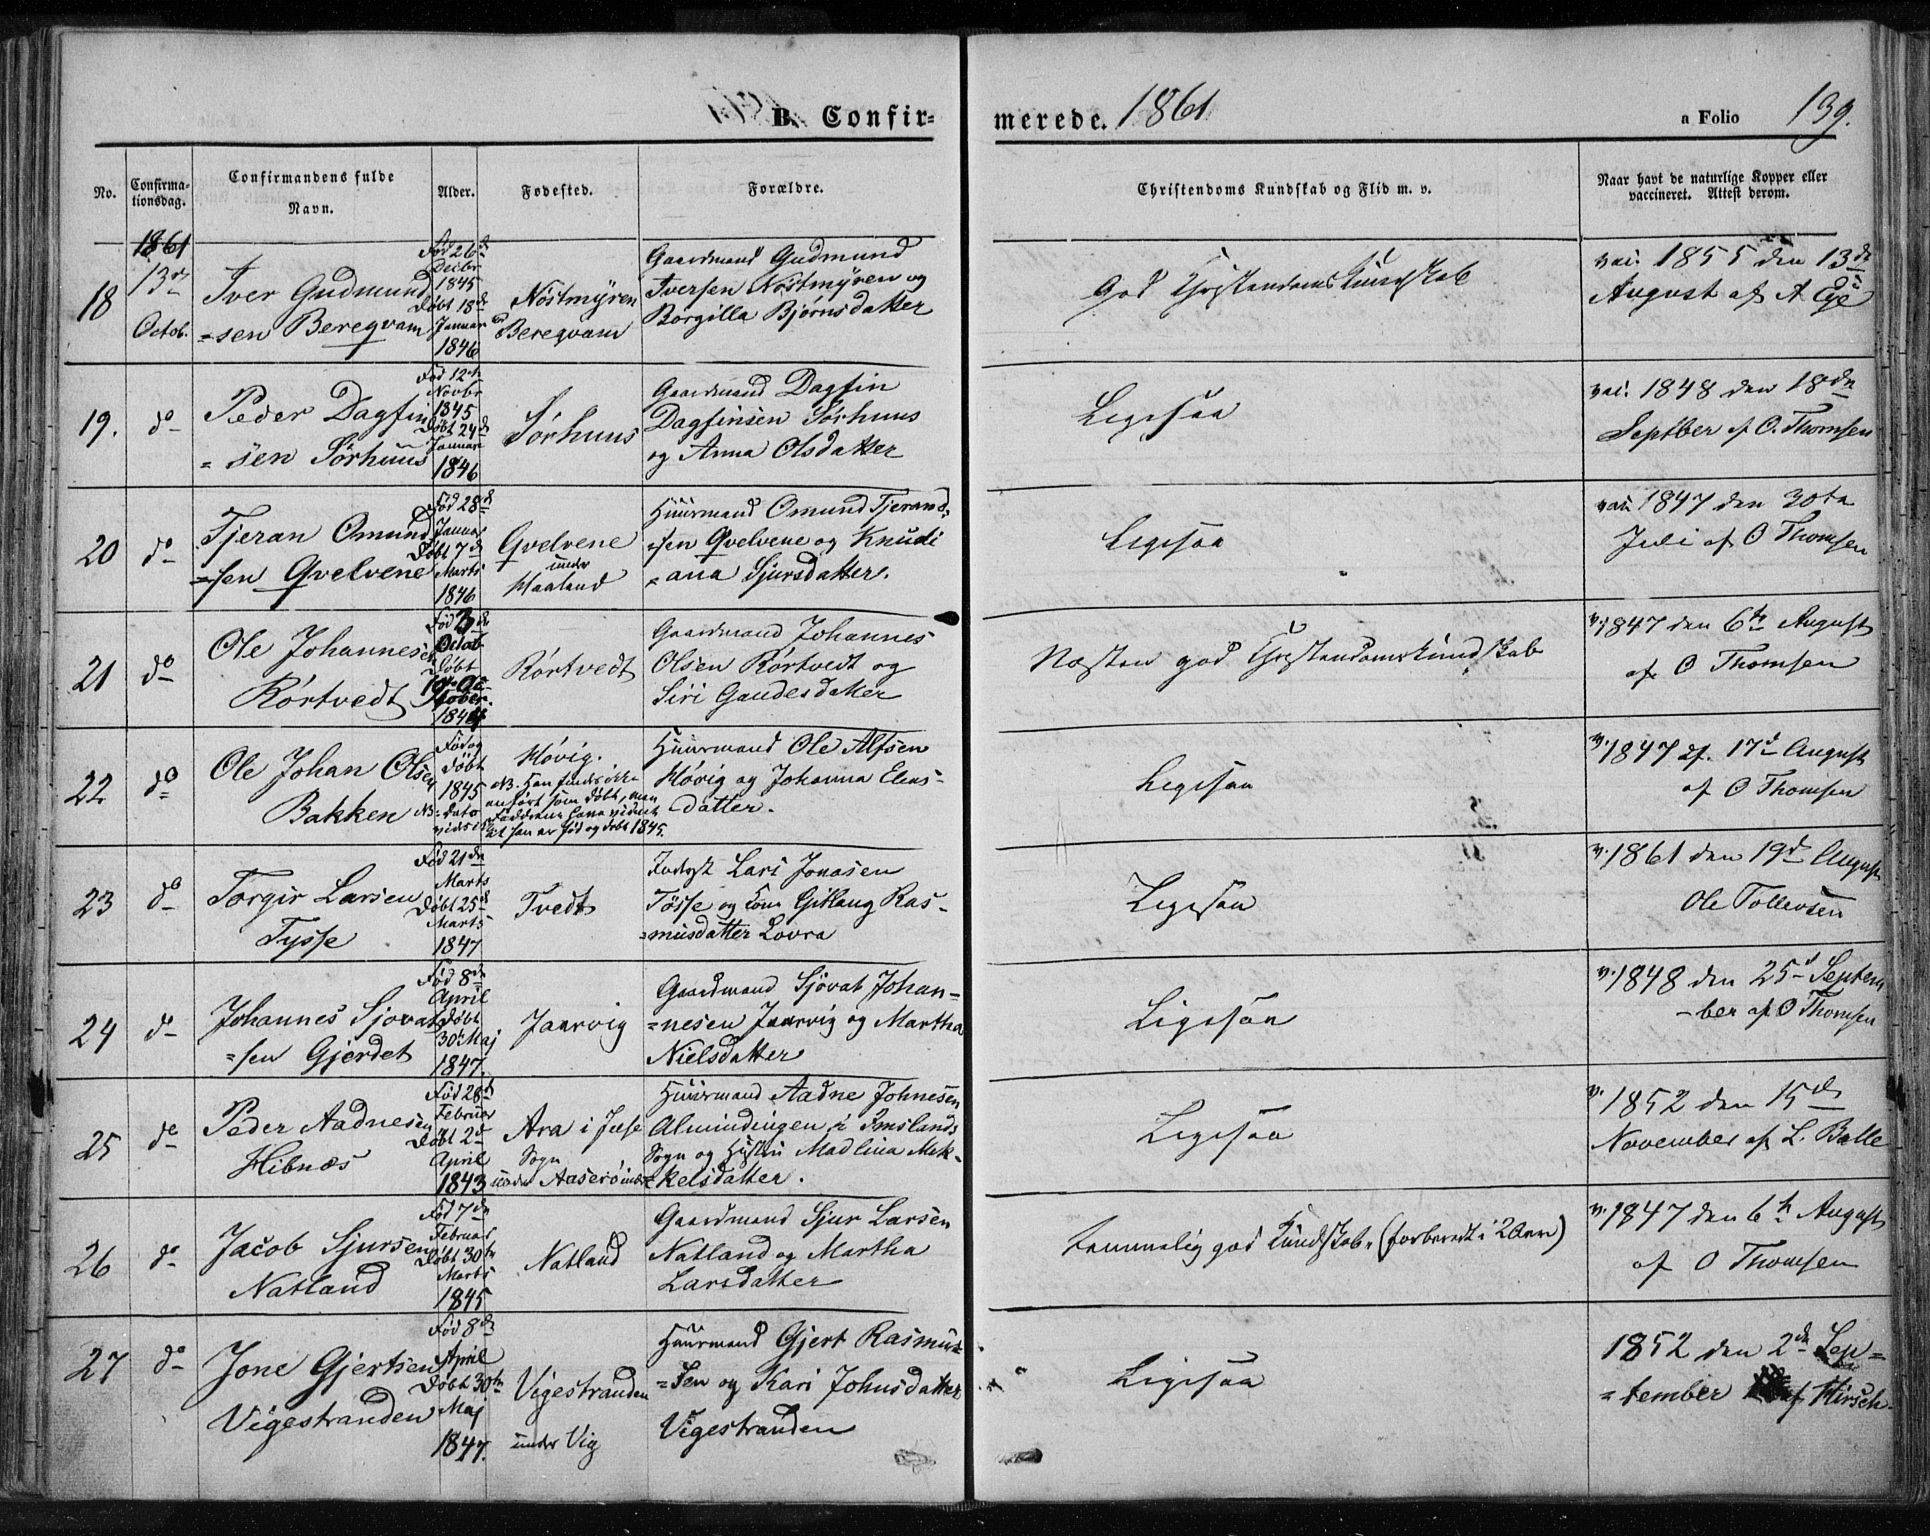 B. Confir-
merede. 1861
a Folio 139.
No.
Confirma-
tionsdag.
Confirmandens fulde
Navn.
Alder.
Fødested.
Forældre.
Christendoms Kundskab og Flid m. v.
Naar havt de naturlige Kopper eller
vaccineret. Attest derom.
1861
18
13de
Octob.
Iver Gudmund
=sen Bereqvam
Fød 26de
Decbr
1845
Døbt 18de
Januar
1846
Nöstmÿren
Bereqvam
Gaardmand Gudmund
Iversen Nöstmÿren og
Borgilla Bjørnsdatter
God Christendomskundskab
vac. 1855 den 13de
August af A Eÿe
19.
do
Peder Dagfin
=sen Sørhuus
Fød 12te
Novbr
1845
Døbt 24de
Januar
1846
Sørhuus
Gaardmand Dagfin
Dagfinsen Sørhuus
og Anna Olsdatter
Ligesaa
vac. 1848 den 18de
Septber af O. Thomsen
20
do
Tjeran Omund
=sen Qvelvene
Fød 28de
Januar
Døbt 7de
Marts
1846
Qvelvene
under
Haaland
Huusmand Omund Tjerand-
=sen Qvelvene og Knudi
=ana Sjursdatter.
Ligesaa
vac. 1847 den 30te
Juli af O Thomsen
21
do
Ole Johannesen
Rørtvedt
Fød 3de
Octob
Døbt
Oc-
tober.
Rørtvedt
Gaardmand Johannes
Olsen Rørtvedt og
Siri Gaudesdatter
Næsten god Christendomskundskab
v. 1847 den 6te August
af O Thomsen
22
do
Ole Johan Olsen
Bakken
Fød og
døbt
1845
NB: Dato
Høvig.
NB. Han findes ikke
anført som døbt, men
Fadderne have vidnet
at han er født og døbt 1845.
Huusmand Ole Alfsen
Høvig og Johanna Elias-
datter.
Ligesaa
v. 1847 d. 17de August
af O Thomsen
23
do
Torgir Larsen
Tysse
Fød 21de
Marts
Døbt 25de
Marts
1847
Tvedt
Inderst Lars Jonasen
Tösse og Kone Gitlaug Ras-
=musdatter Lovra
Ligesaa
v. 1861 den 19de August
Ole Tollevsen
24
do
Johannes Sjovat
=sen Gjerdet
Fød 8de
April
Døbt
30te Maj
1847.
Jaarvig
Gaardmand Sjövat Johan-
=nesen Jaarvig og Martha
Nielsdatter
Ligesaa
v. 1848 den 25de Septem
-ber af O Thomsen
25
do
Peder Aadnesen
Hibnæs
Fød 28de
Februar
Døbt 2de
April
1843
Ara i Jelse
Sogn
Huusmand Aadne Johnesen
Almindingen i Imslands
Sogn og Hustru Madlina Mik-
kelsdatter.
Ligesaa
v. 1852 den 15de
November af L. Balle
26
do
Jacob Sjursen
Natland
Fød 7de
Februar
Døbt 30te
Marts
1845
Natland
Gaardmand Sjur Larsen
Natland og Martha
Larsdatter
temmelig god Kundskab, (forberedt i 2 Aar)
v. 1847 den 6te August
af O Thomsen
27
do
Jone Gjertsen
Vigestranden
Fød 8de
April
Døbt 30te
Maj
1847.
Vigestranden
under Vig
Huusmand Gjert Rasmus-
=sen og Kari Johnsdatter
Vigestranden
Ligesaa
1852 den 2de Sep=
=tember af Hirsch.